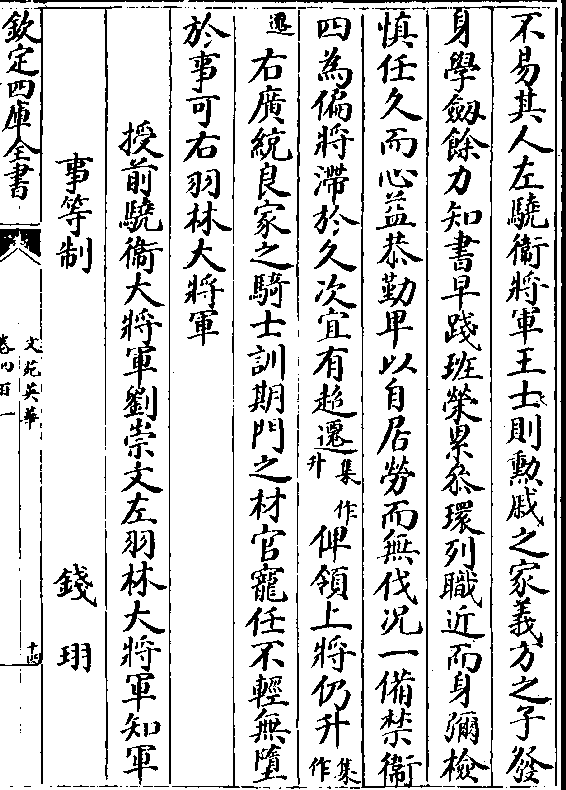 不易其人左驍衞將軍王士則勳戚之家義方之子發
身學劔餘力知書早踐班榮累叅環列職近而身彌檢
慎任久而心益恭勤卑以自居勞而無伐况一備禁衞
四為偏將滯於久次宜有超遷集作升俾領上將仍升集作
遷右廣統良家之騎士訓期門之材官寵任不輕無墮
於事可右羽林大將軍
授前驍衞大將軍劉崇文左羽林大將軍知軍
事等制 錢珝
欽定四庫全書
文苑英華
卷四百一
十四